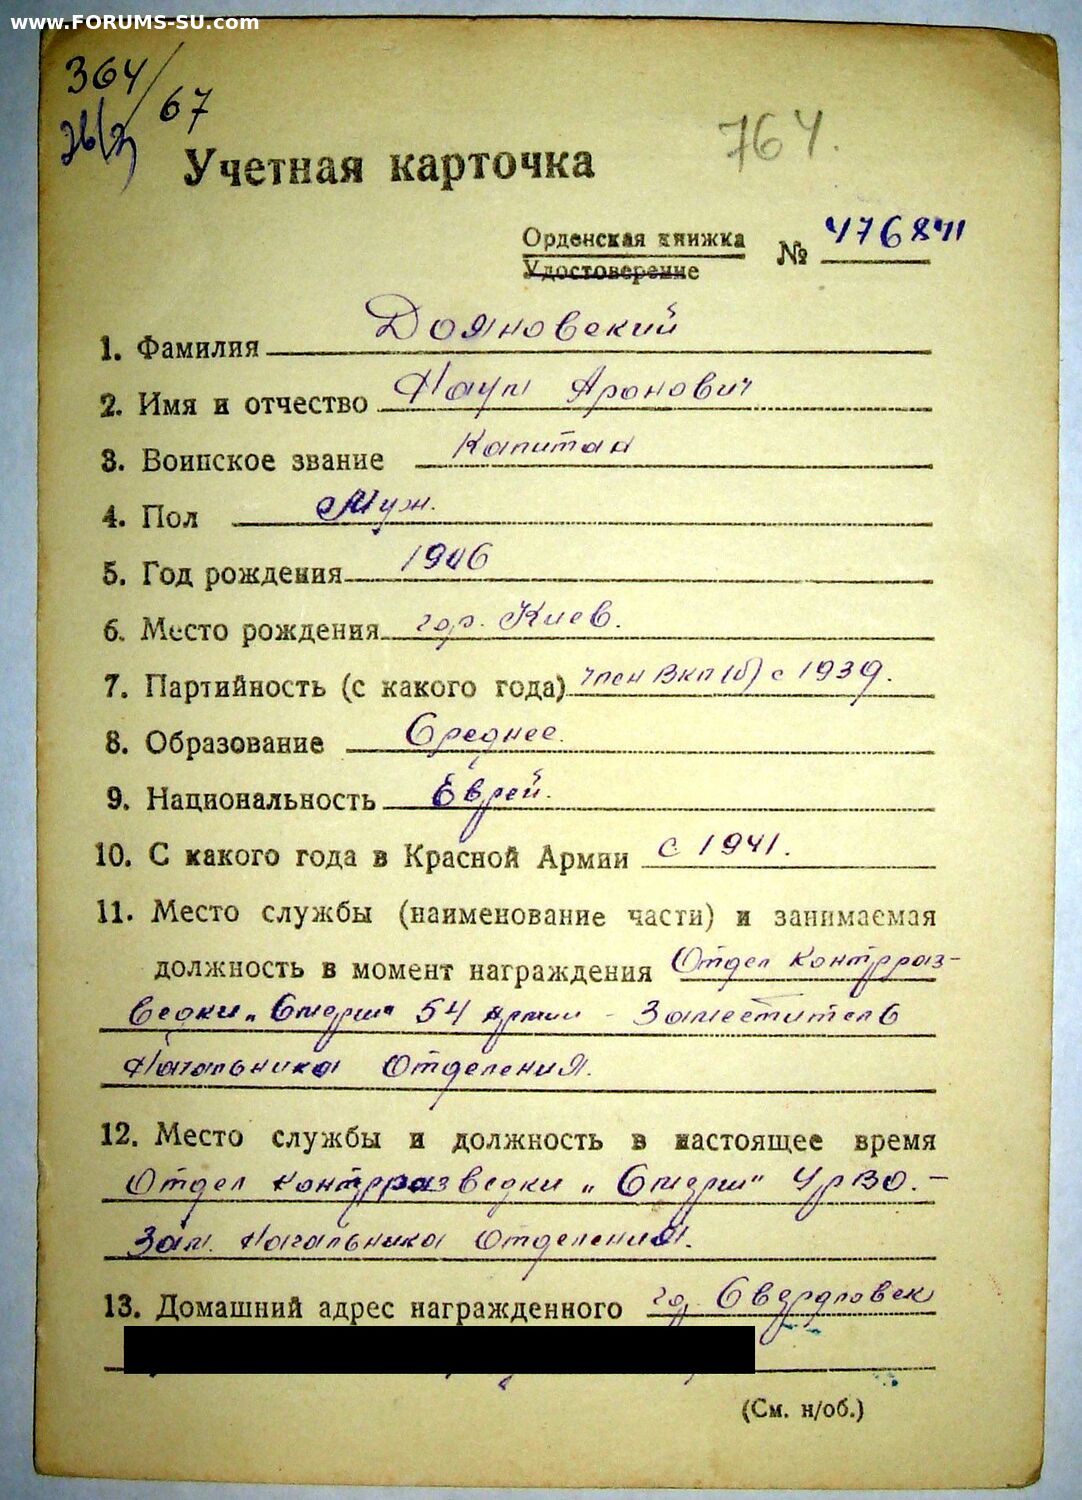 www.FORUMS-SU.com
364/67
764.
Учетная карточка
Орденская книжка
Удостоверение
№ 476841
1. Фамилия Дояновский
2. Имя и отчество Наум Аронович
3. Воинское звание Капитан
4. Пол Муж.
5. Год рождения 1906
6. Место рождения гор. Киев.
7. Партийность (с какого года) член ВКП(б) с 1939.
8. Образование Среднее.
9. Национальность Еврей.
10. С какого года в Красной Армии с 1941.
11. Место службы (наименование части) и занимаемая
должность в момент награждения Отдел контрраз-
ведки „Смерш" 54 Армии - Заместитель
Начальника Отделения.
12. Место службы и должность в настоящее время
Отдел контрразведки „Смерш" УрВО. -
Зам. Начальника Отделения.
13. Домашний адрес награжденного гор. Свердловск
(См. н/об.)